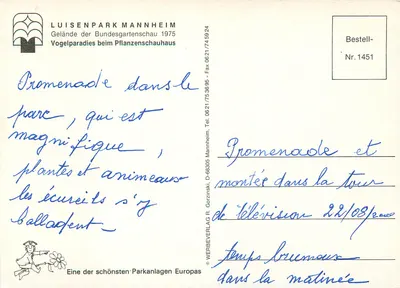 LUISENPARK MANNHEIM
Gelände der Bundesgartenschau 1975
Vogelparadies beim Pflanzenschauhaus
Promenade dans le
parc, qui est
magnifique,
plantes et animeaux
les écureils s'y
balladent -
© WERBEVERLAG R. Gorlinski, D-68305 Mannheim, Tel. 06 21/75 36 95 - Fax 06 21/74 59 24
Bestell-
Nr. 1451
Promenade et
montée dans la tour
de télévision 22/08/2000
temps brumeux
dans la matinée
Eine der schönsten Parkanlagen Europas